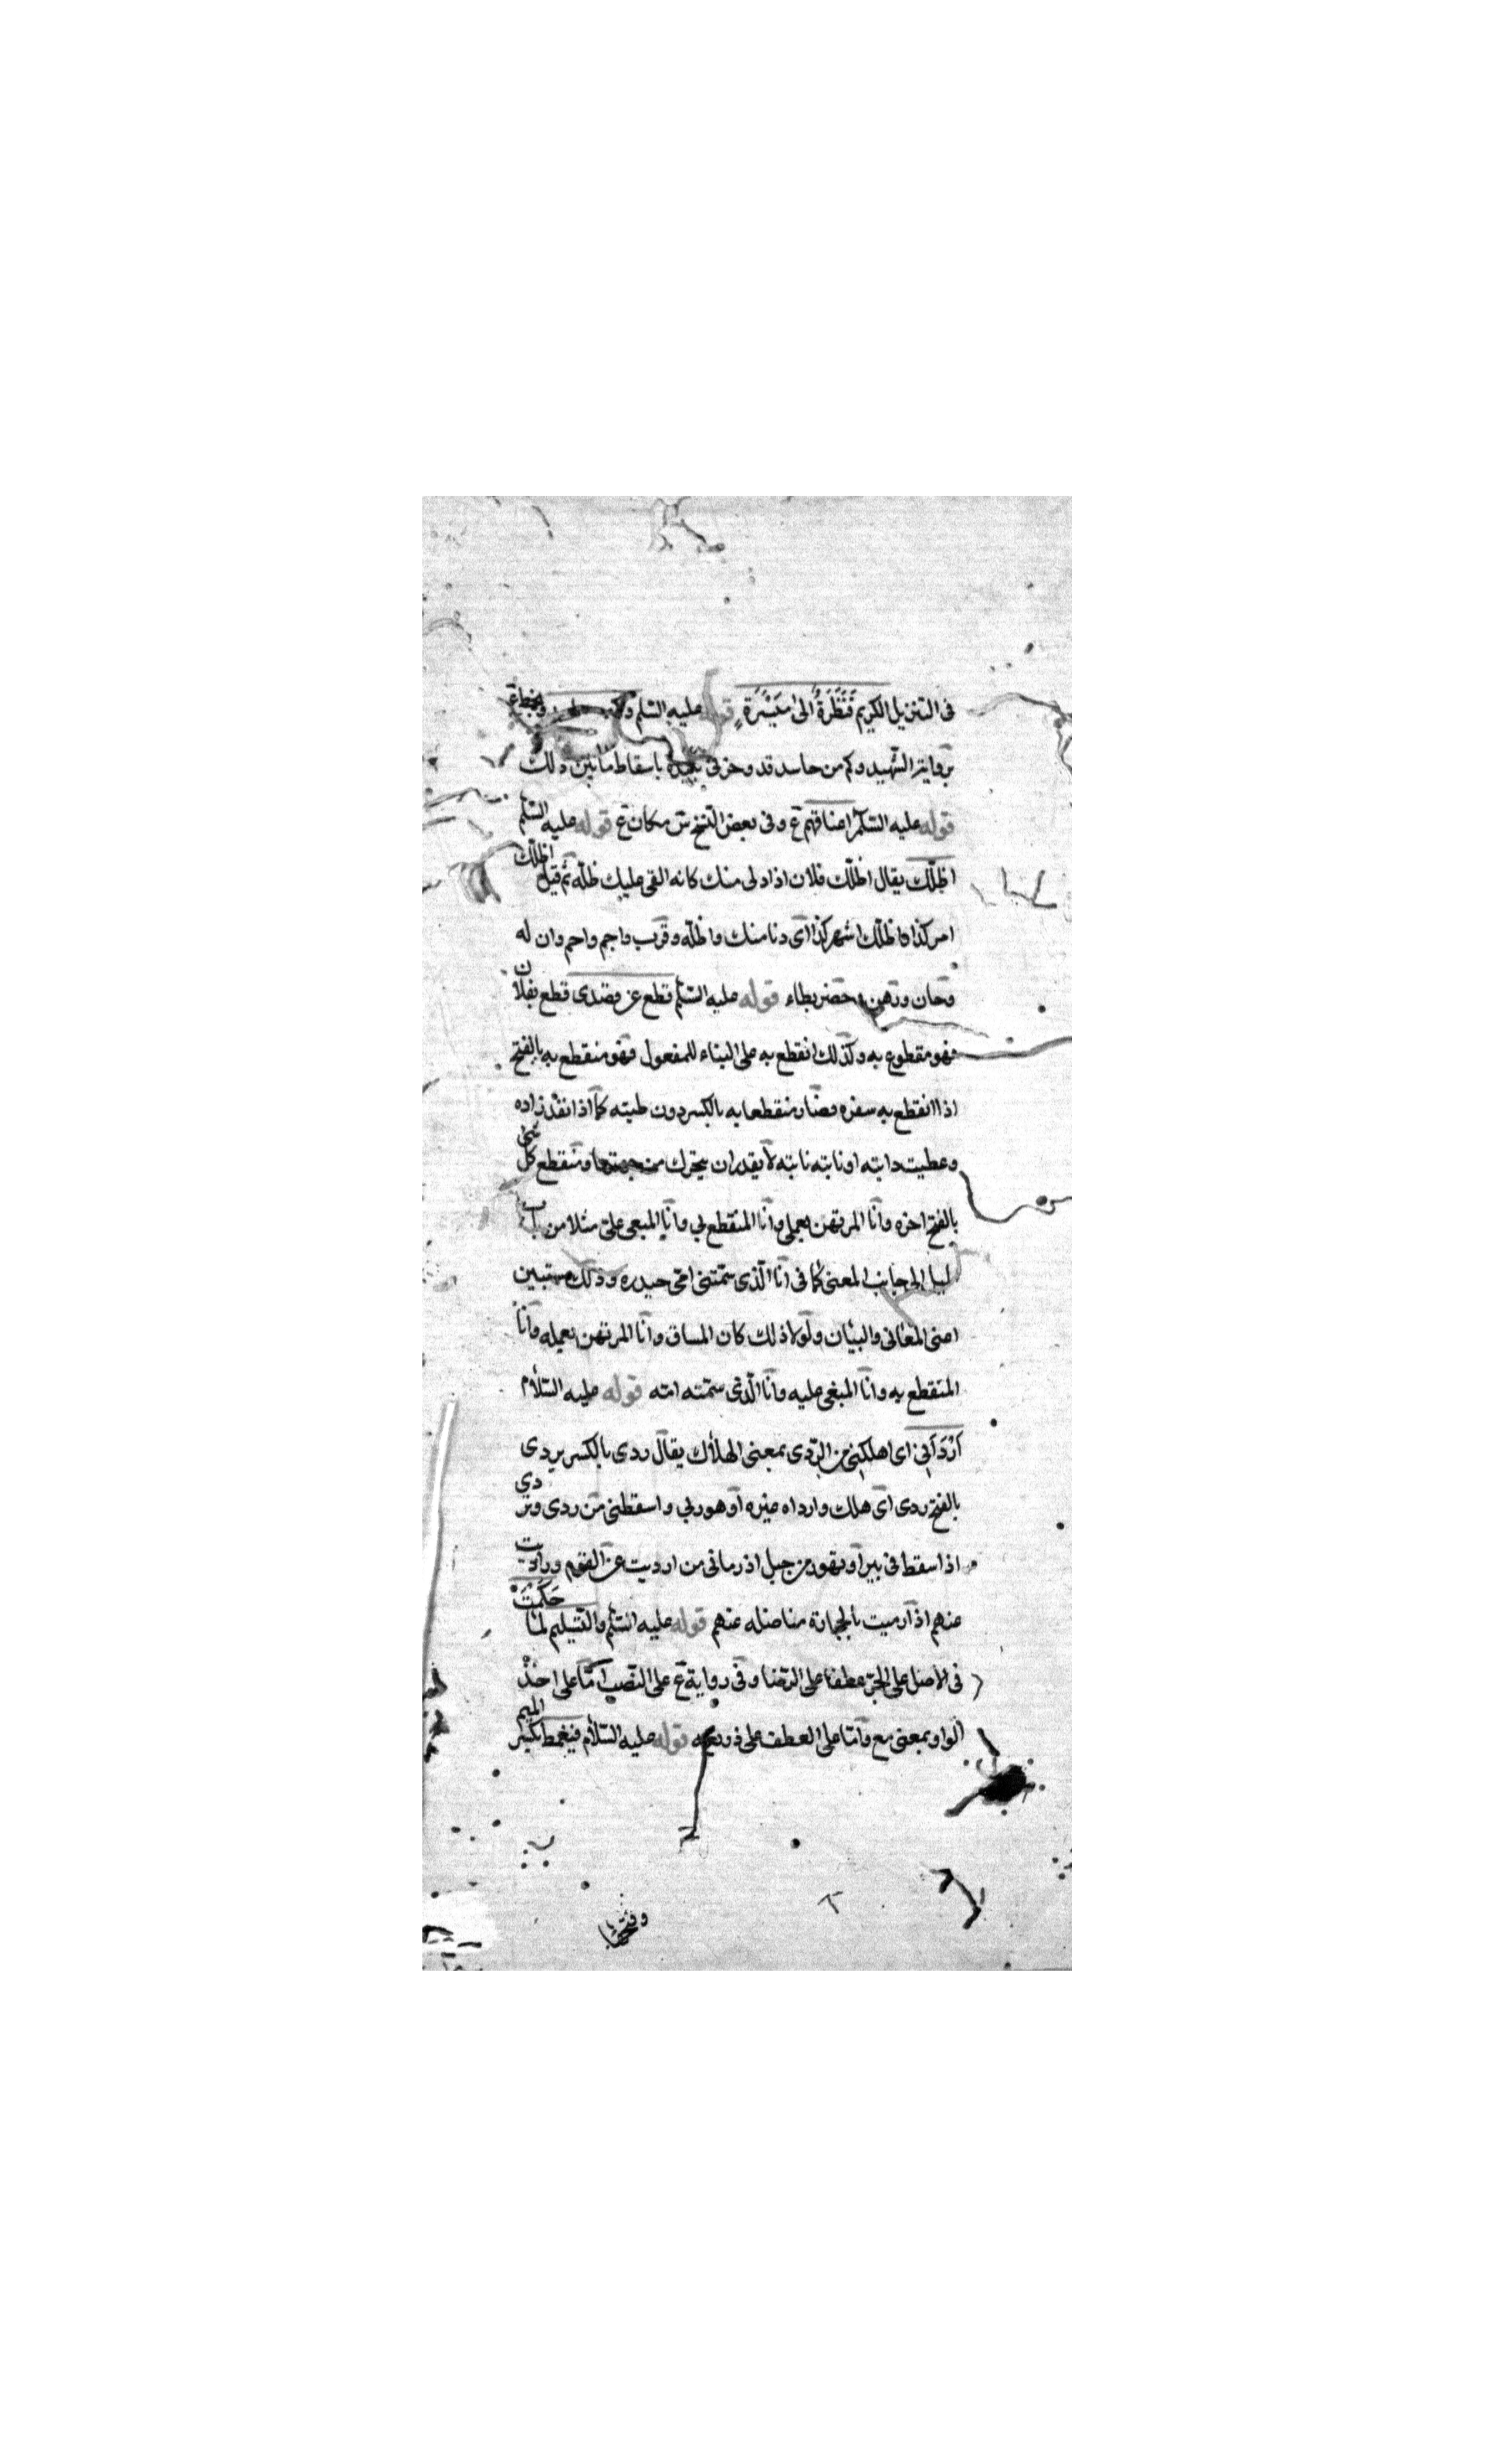 فى التنزيل الكريم فَنَظِرَةٌ الى مَيْسَرَةٍ قوله عليه السّلم
برواية الشّهيد وكم من حاسد قد وحزنى باسقاط مابين ذلك
قوله عليه السّلم اعناقهم ع وفى بعض النّسخ ش مكان ع قوله عليه السّلم
اظلّك يقال اظلّك فلان اذا دنى منك كانه القى عليك ظلّه ثم قيل اظلّك
امر كذا واظلّك شهر كذا اى دنا منك واظلّه وقرب واجم واحم وان له
وحان ورهن وحضر بطاء قوله عليه السّلم قطع عن قصدى قطع بفلان
فهو مقطوع به وكذلك انقطع به على البناء للمفعول فهو منقطع به بالفتح
اذا انقطع به سفره فصار منقطعا به بالكسر دون طيته كما اذا نفد زاده
وعطبت دابته او نابته نابته لا يقدر ان يتحرك من جهتها ومنقطع كل شئ
بالفتح اخره وانا المرتهن بعملى وانا المنقطع بى وانا المبغى علىّ مثلا من باب
الى جانب المعنى كما فى انا الّذى سمّتنى امّى حيدره وذلك مستبين
المعانى والبيان ولولا ذلك كان المساق وانا المرتهن بعمله وانا
المنقطع به وانا المبغى عليه وانا الّذى سمّته امّه قوله عليه السّلام
أَرْدَانِى اى اهلكنى من الرّدى بمعنى الهلاك يقال ردى بالكسر يردى
بالفتح ردى اى هلك وارداه غيره او هوربى واسقطنى من ردى وتردى
اذا سقط فى بير او تهور من جبل اذ رمانى من ارديت عن القوم وراديت
عنهم اذا رميت بالحجارة مناضله عنهم قوله عليه السّلم والتّسليم لما حَكَمْتَ
فى الاصل على الجرّ عطفا على الرّضا وفى رواية ع على النّصب امّا على اخذ
الواو بمعنى مع وامّا على العطف على قوله عليه السّلام فيغمط بكسر الميم
وفتحها